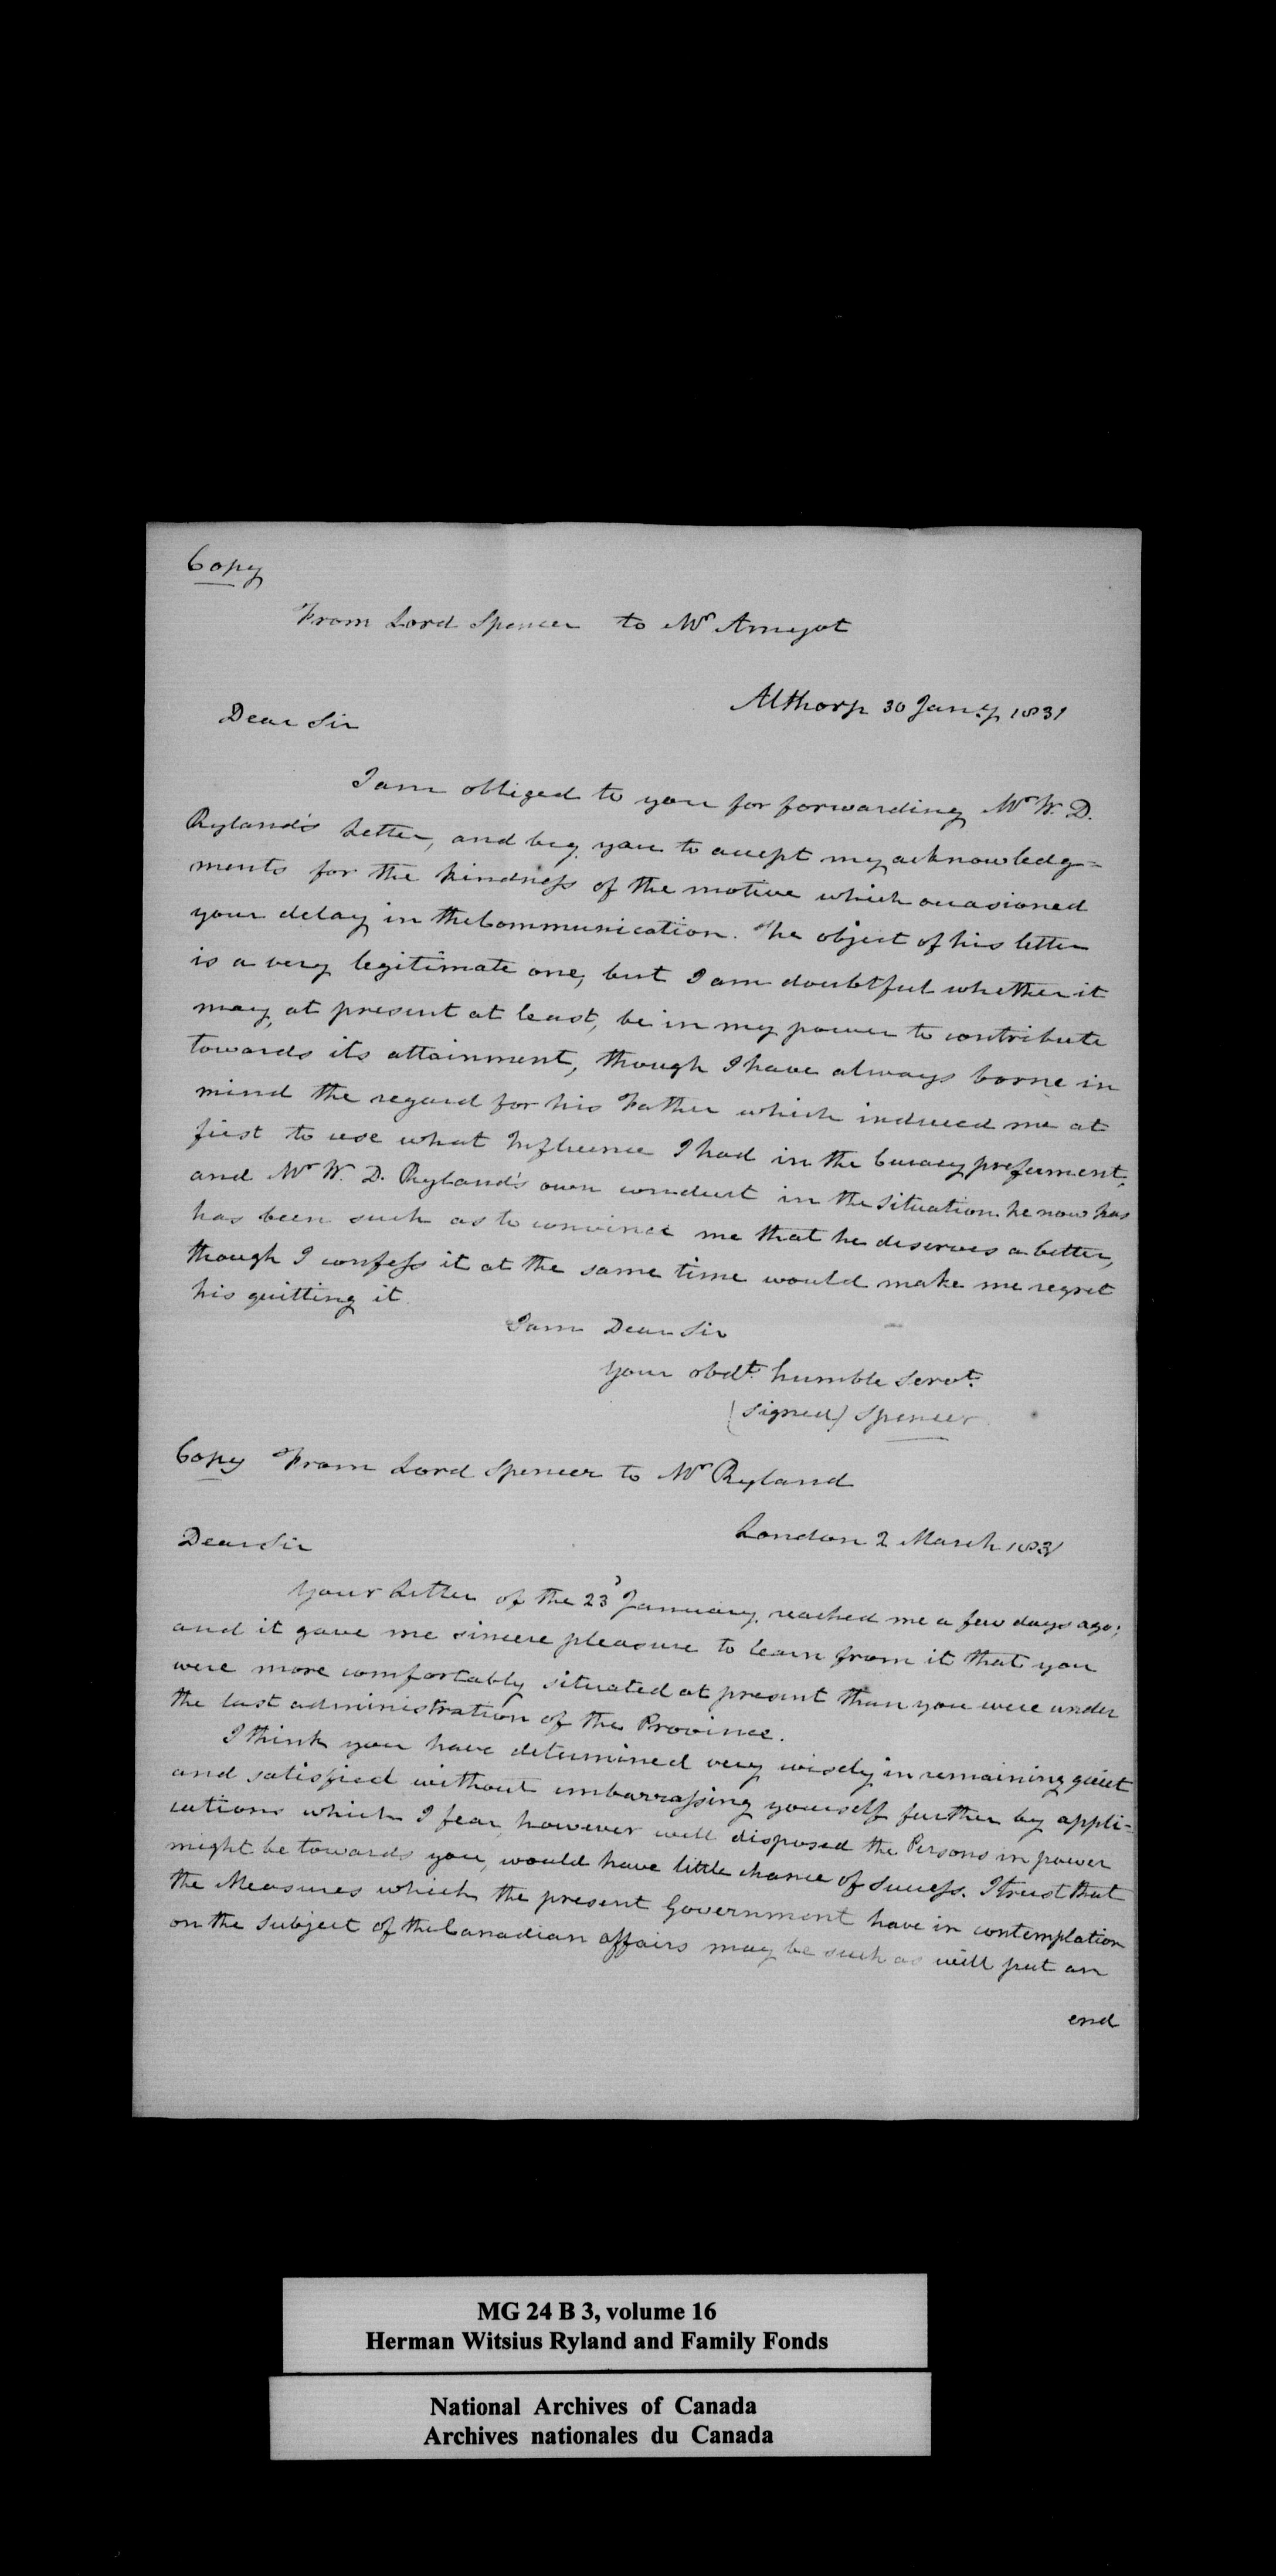 Copy
From Lord Spencer to Mr Amyot
Althorp 30 Jany 1831
Dear Sir
I am obliged to you for forwarding Mr W. D.
Ryland's Letter, and beg you to accept my acknowledg=
ments for the kindness of the motive which occasioned
your delay in the Communication. The object of his letter
is a very legitimate one, but I am doubtful whether it
may, at present at least, be in my power to contribute
towards its attainment, though I have always borne in
mind the regard for his Father which induced me at
first to use what Influence I had in the Curacy preferment,
and Mr W. D. Ryland's own conduct in the situation he now has
has been such as to convince me that he deserves a better,
though I confess it at the same time would make me regret
his quitting it.
I am Dear Sir
Your obdt. humble Servt.
(signed) Spencer
Copy From Lord Spencer to Mr Ryland
London 2 March 1831
Dear Sir
Your Letter of the 23d January, reached me a few days ago;
and it gave me sincere pleasure to learn from it that you
were more comfortably situated at present than you were under
the last administration of the Province.
I think you have determined very wisely in remaining quiet
and satisfied without embarrassing yourself further by appli=
cations which I fear, however well disposed the Persons in power
might be towards you, would have little chance of success. I trust that
the Measures which the present Government have in contemplation
on the subject of the Canadian affairs may be such as will put an
end
MG 24 B 3, volume 16
Herman Witsius Ryland and Family Fonds
National Archives of Canada
Archives nationales du Canada